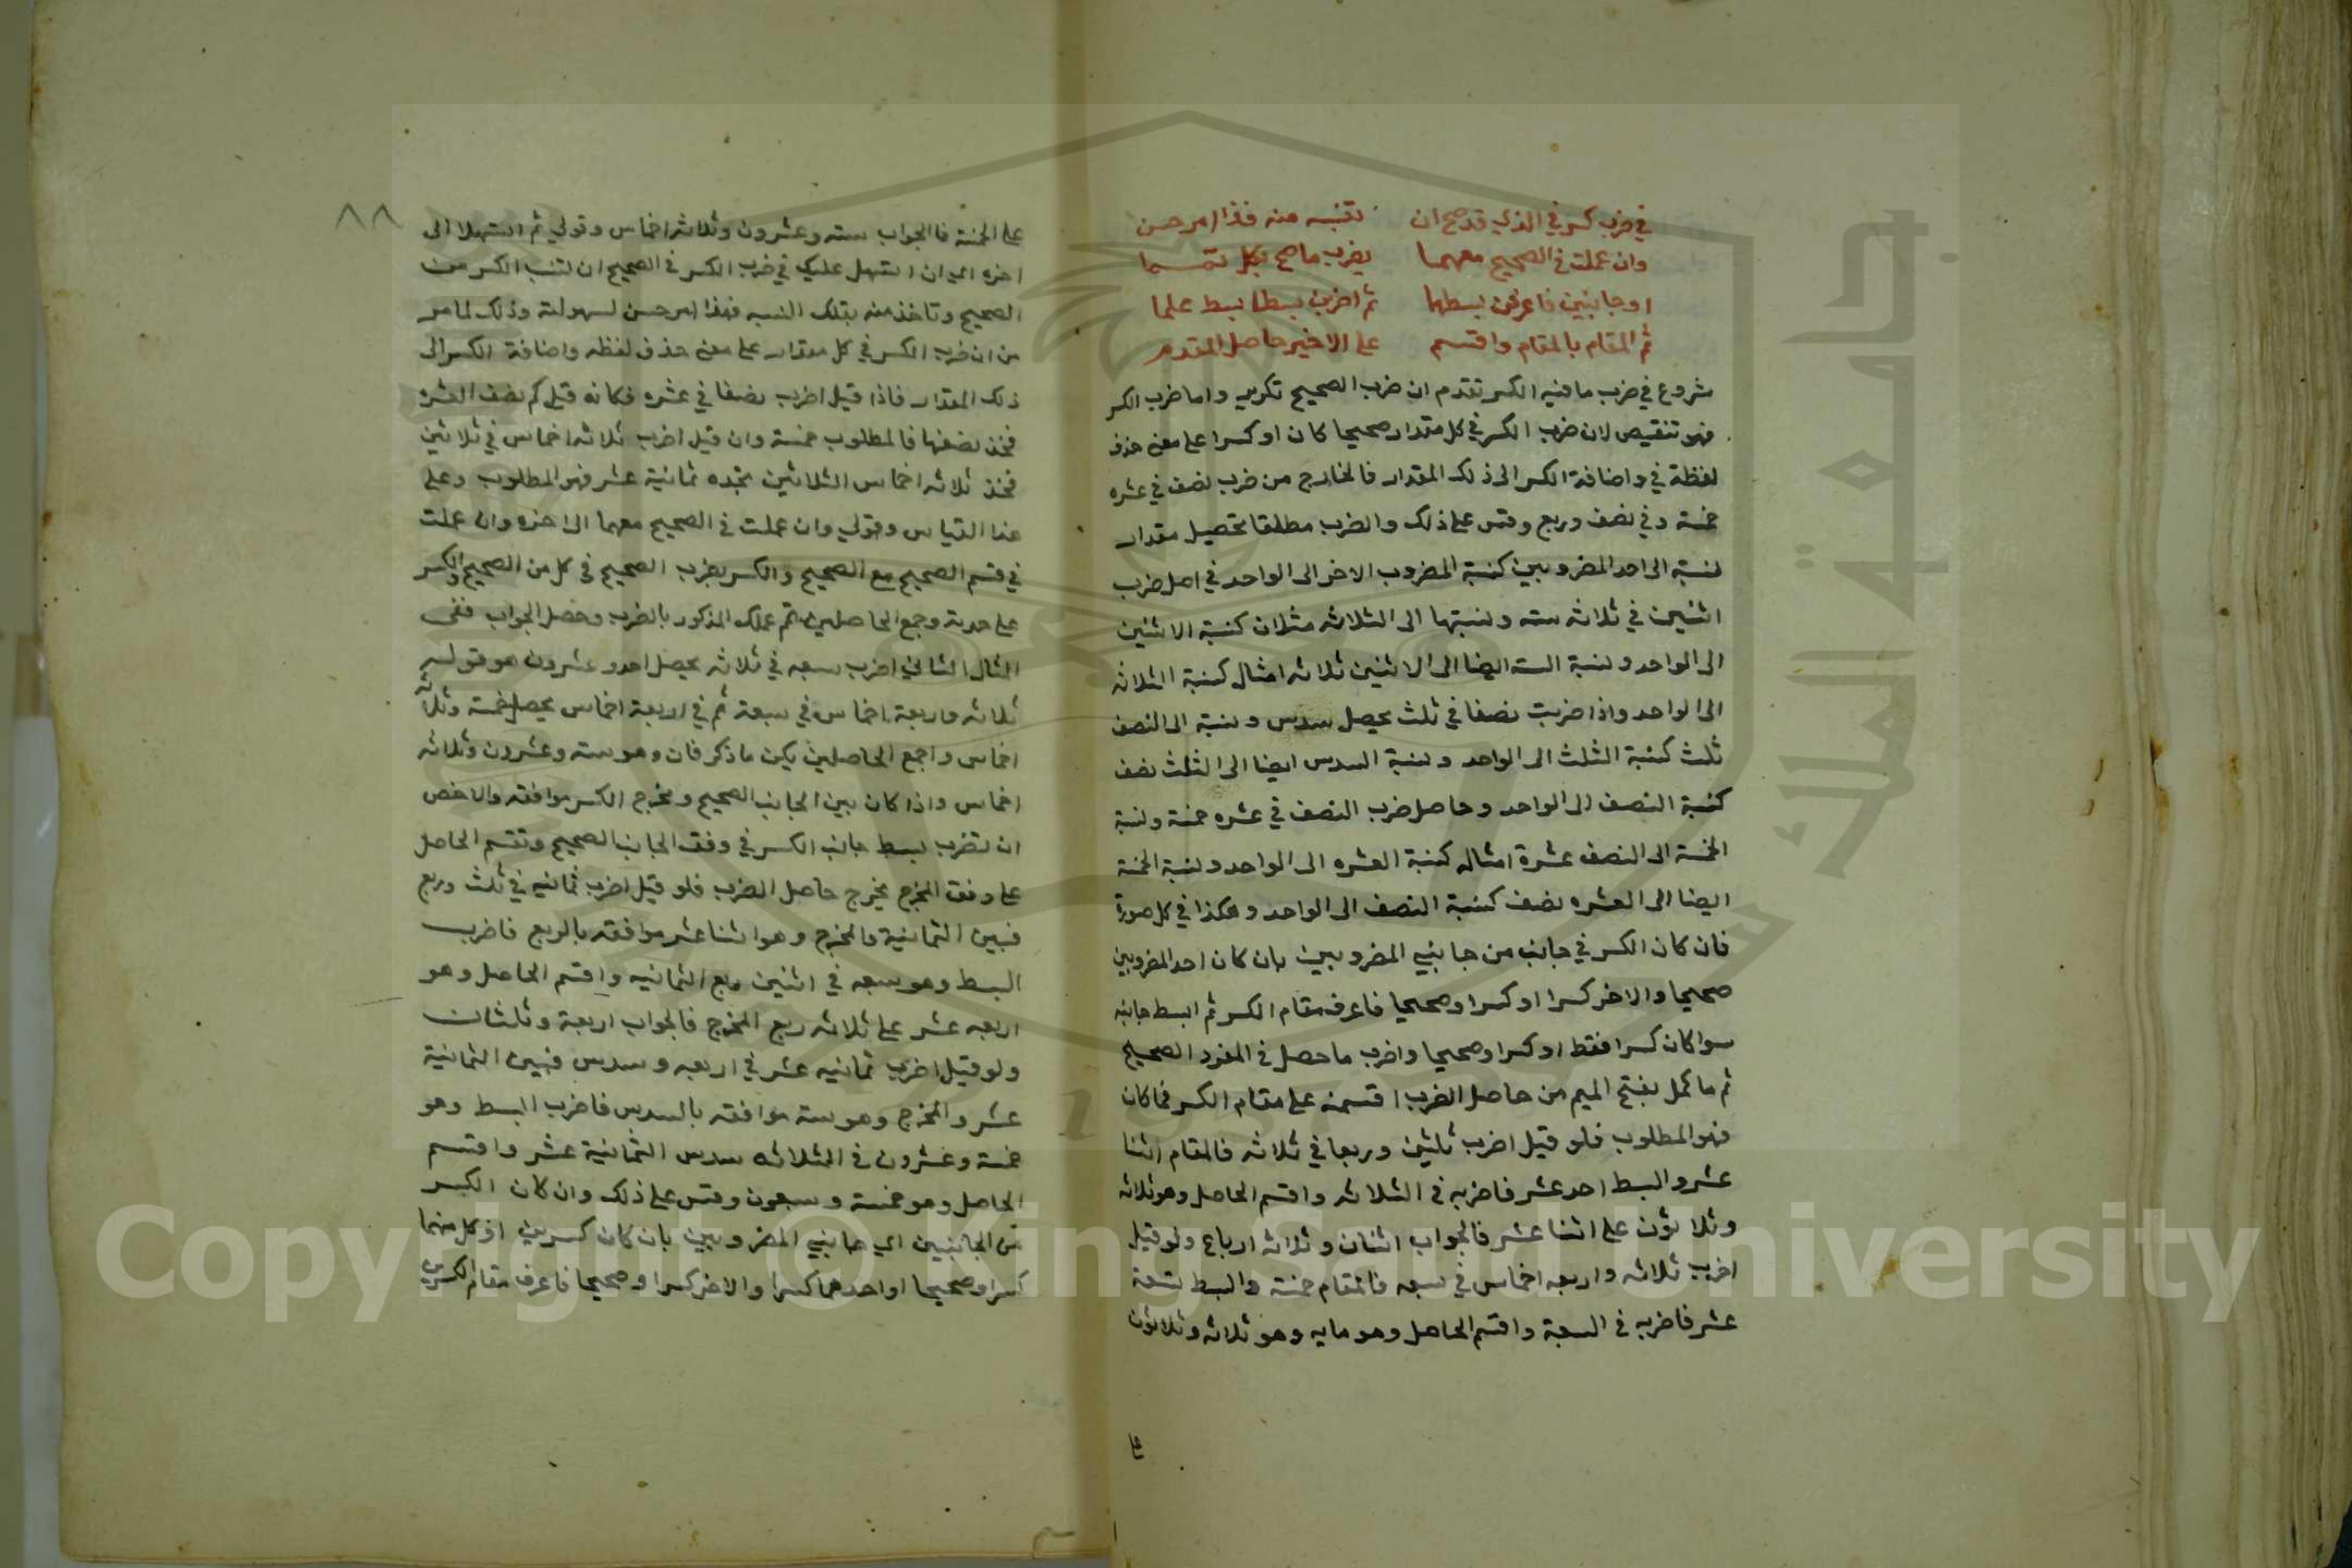 في ضرب كسر في الذي قد صح ان تنسبه منه فذا امر حسن
وان عملت في الصحيح معهما بضرب ما صح بكل تمما
او جانبين فاعرفن بسطهما ثم اضربن بسطا ببسط علما
ثم المقام بالمقام واقسم على الاخير حاصل المقدم
شروع في ضرب ما فيه الكسر تقدم ان ضرب الصحيح تكرير واما ضرب الكسر
فهو تنقيص لان ضرب الكسر في كل مقدار صحيحا كان او كسرا على معنى حذف
لفظة في واضافة الكسر الى ذلك المقدار فالخارج من ضرب نصف في عشره
خمسة وفي نصف وربع وقس على ذلك والضرب مطلقا تحصيل مقدار
نسبته الى احد المضروبين كنسبة المضروب الاخر الى الواحد في اصل ضرب
اثنين في ثلاثه سته ونسبتها الى الثلاثه مثلان كنسبة الاثنين
الى الواحد ونسبة السته ايضا الى الاثنين ثلاثه امثال كنسبة الثلاثه
الى الواحد واذا ضربت نصفا في ثلث يحصل سدس ونسبة الى النصف
ثلث كنسبة الثلث الى الواحد ونسبة السدس ايضا الى الثلث نصف
كنسبة النصف الى الواحد وحاصل ضرب النصف في عشره خمسة ونسبة
الخمسة الى النصف عشرة امثاله كنسبة العشره الى الواحد ونسبة الخمسة
ايضا الى العشره نصف كنسبة النصف الى الواحد وهكذا في كل صورة
فان كان الكسر في جانب من جانبي المضروبين بان كان احد المضروبين
صحيحا والاخر كسرا او كسرا وصحيحا فاعرف مقام الكسر ثم ابسط جانبه
سوا كان كسرا فقط او كسرا وصحيحا واضرب ما حصل في المفرد الصحيح
ثم ما كمل بفتح الميم من حاصل الضرب اقسمنه على مقام الكسر فما كان
فهو المطلوب فلو قيل اضرب ثلثين وربعا في ثلاثه فالمقام اثنا
عشر والبسط احد عشر فاضربه في الثلاثه واقسم الحاصل وهو ثلاثه
وثلاثون على اثنا عشر فالجواب اثنان وثلاثه ارباع ولو قيل
اضرب ثلاثه واربعه اخماس في سبعه فالمقام خمسة والبسط تسعة
عشر فاضربه في السبعة واقسم الحاصل وهو مايه وهو ثلاثه وثلاثون
على
٨٨
على الخمسة فالجواب سته وعشرون وثلاثه اخماس وقولي ثم استهلا الى
اخره اي وان استهل عليك في ضرب الكسر في الصحيح ان تنسب الكسر من
الصحيح وتاخذ منه بتلك النسبه فهذا امر حسن لسهولته وذلك لما مر
من ان ضرب الكسر في كل مقدار على معنى حذف لفظه واضافة الكسر الى
ذلك المقدار فاذا قيل اضرب نصفا في عشره فكانه قيل كم نصف العشره
فخذ نصفها فالمطلوب خمسة وان قيل اضرب ثلاثه اخماس في ثلاثين
فخذ ثلاثه اخماس الثلاثين تجده ثمانية عشر فهو المطلوب وعلى
هذا القياس وقولي وان عملت في الصحيح معهما الى اخره وان عملت
في قسم الصحيح مع الصحيح والكسر بضرب الصحيح في كل من الصحيح والكسر
على حدته وجمع الحاصلين تم عملك المذكور بالضرب وحصل الجواب ففي
المثال الثاني اضرب سبعه في ثلاثه يحصل احد وعشرون هو قوله
ثلاثه واربعة اخماس في سبعة ثم في اربعة اخماس يحصل خمسة وثلاثه
اخماس واجمع الحاصلين يكن ما ذكر فان وهو سته وعشرون وثلاثه
اخماس واذا كان بين الجانب الصحيح ومخرج الكسر موافقه والاخص
ان تضرب بسط جانب الكسر في وفق الجانب الصحيح وتقسم الحاصل
على وفق المخرج يخرج حاصل الضرب فلو قيل اضرب ثمانيه في ثلث وربع
فبين الثمانية والمخرج وهو اثنا عشر موافقه بالربع فاضرب
البسط وهو سبعه في اثنين ربع الثمانيه واقسم الحاصل وهو
اربعه عشر على ثلاثه ربع المخرج فالجواب اربعة وثلثان
ولو قيل اضرب ثمانيه عشر في اربعه وسدس فبين الثمانية
عشر والمخرج وهو سته موافقه بالسدس فاضرب البسط وهو
خمسة وعشرون في الثلاثه سدس الثمانية عشر واقسم
الحاصل وهو خمسة وسبعون وقس على ذلك وان كان الكسر
من الجانبين اي جانبي المضروبين بان كان كسرين او كل منهما
كسرا وصحيحا او احدهما كسرا والاخر كسرا وصحيحا فاعرف مقام الكسرين
جامعة الملك سعود
Copyright © King Saud University